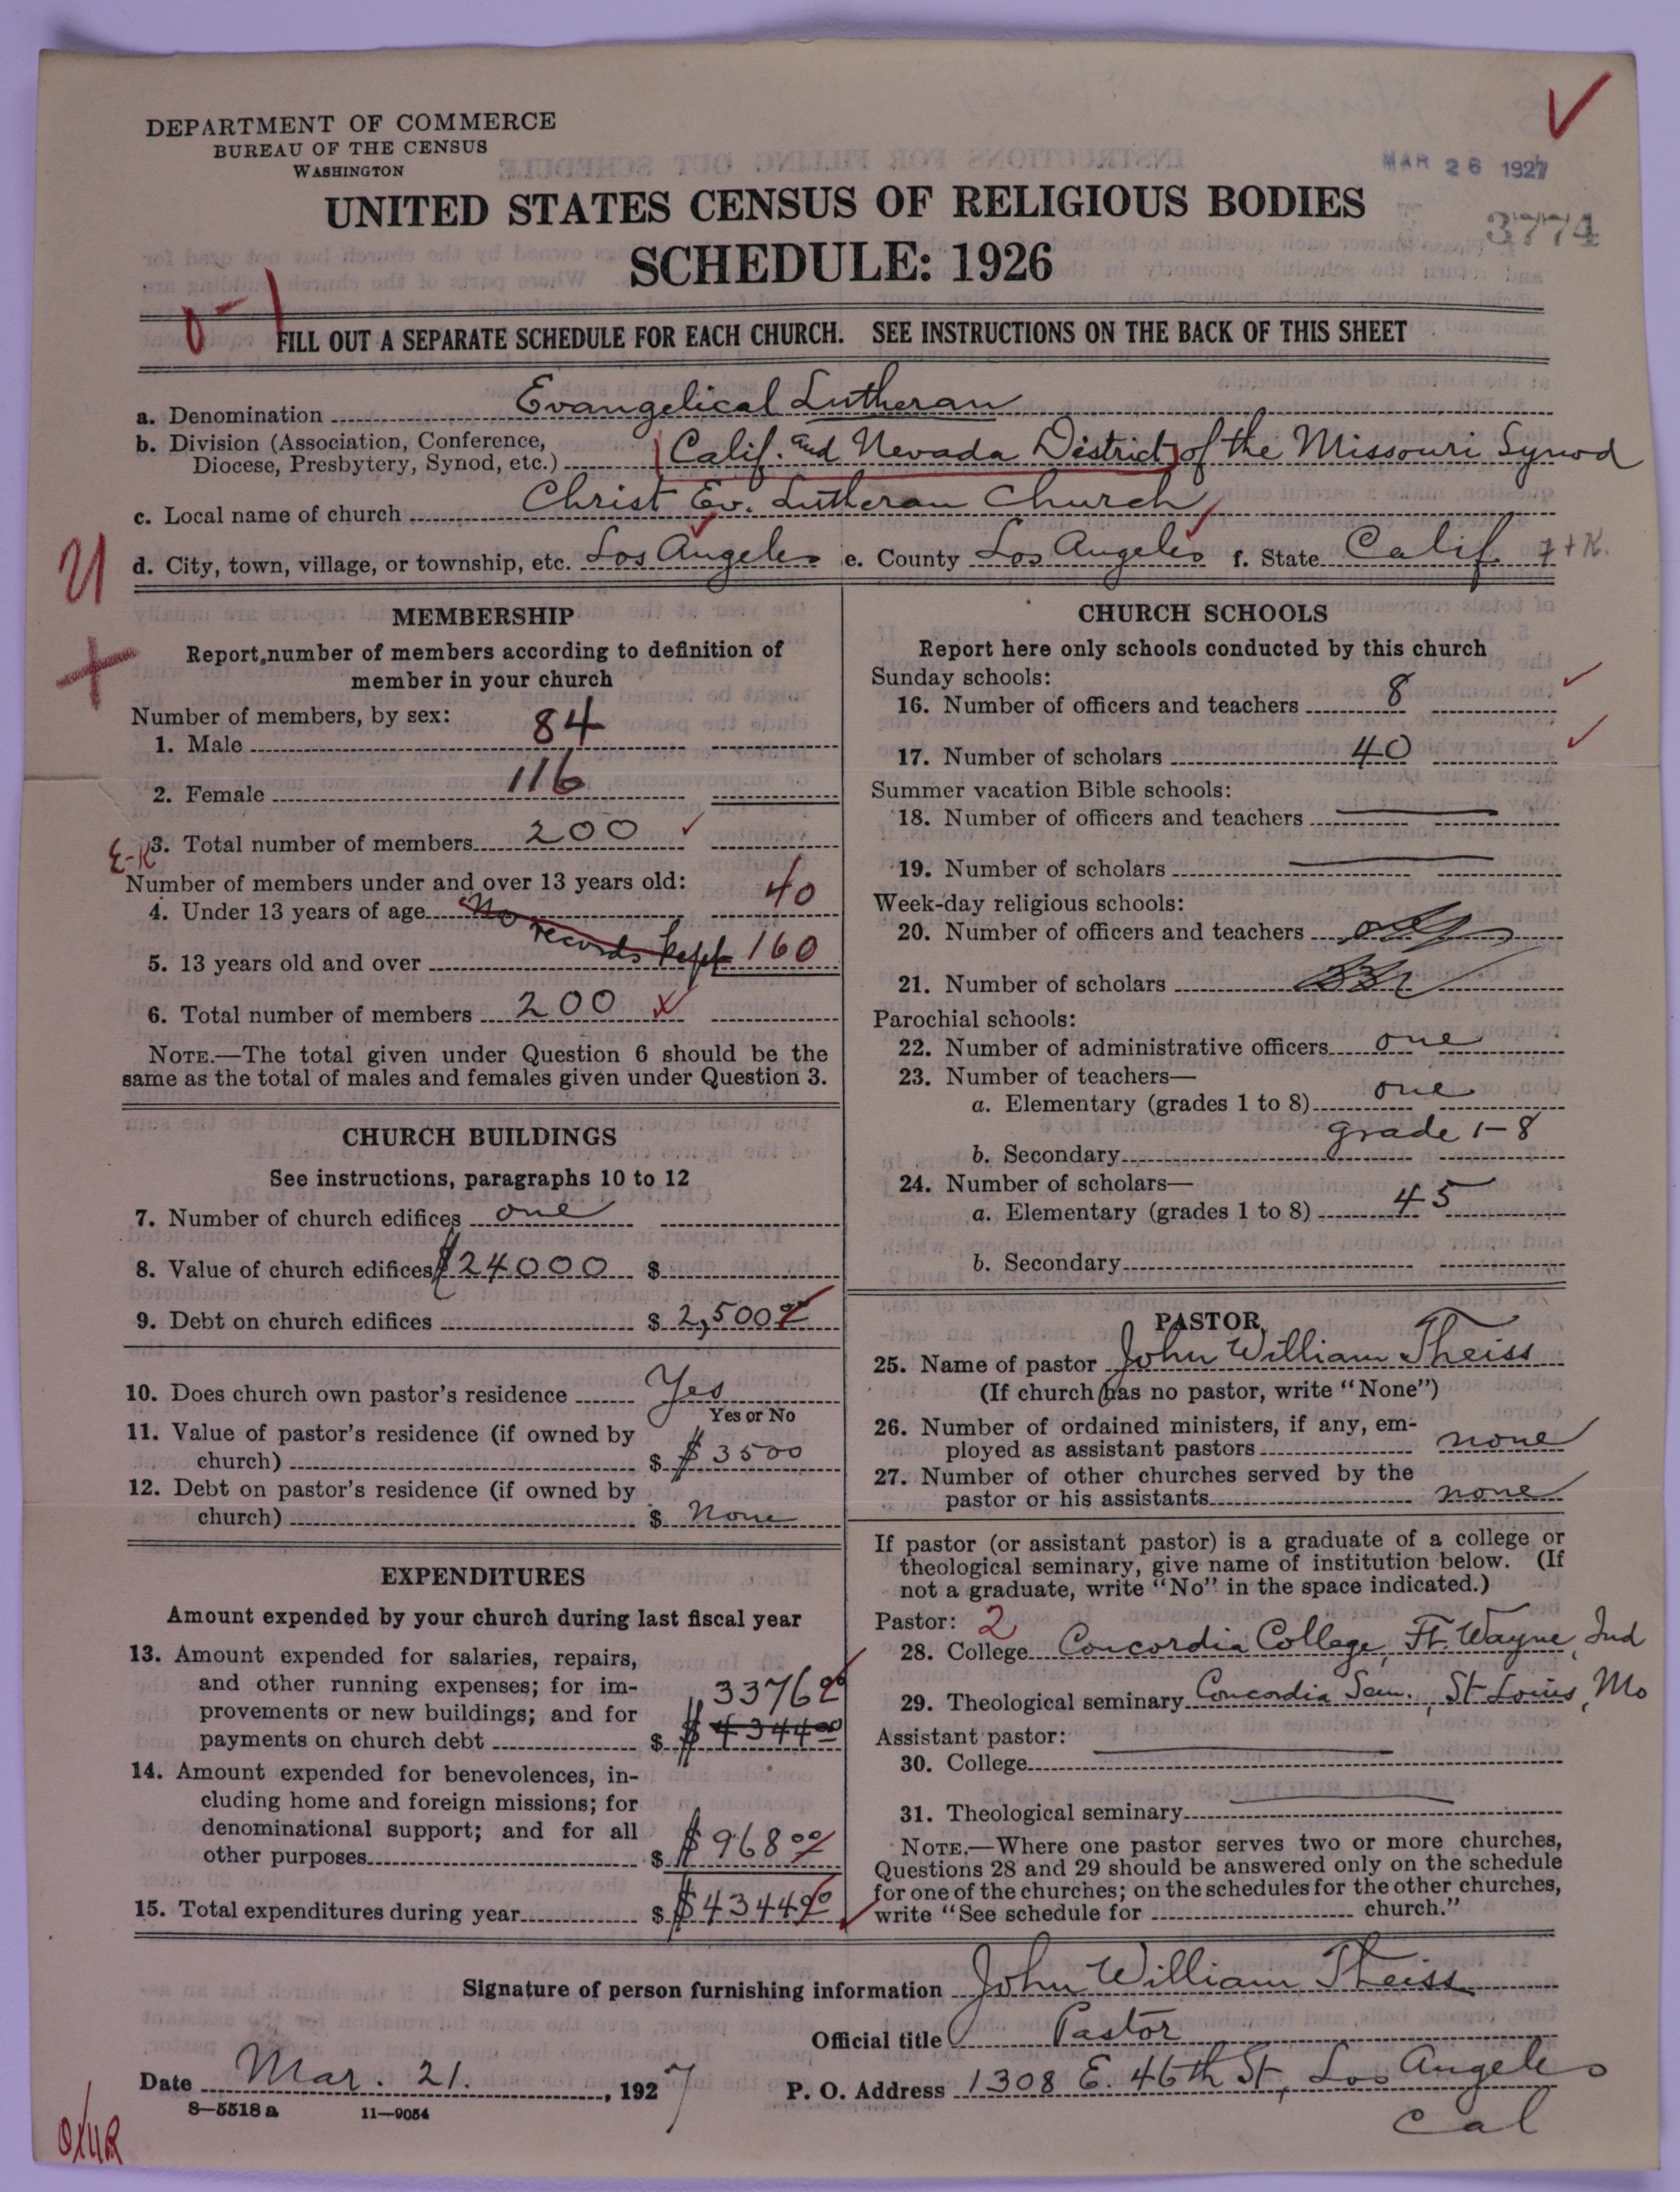 DEPARTMENT OF COMMERCE
BUREAU OF THE CENSUS
WASHINGTON
MAR 26 1927
UNITED STATES CENSUS OF RELIGIOUS BODIES
3774
SCHEDULE: 1926
FILL OUT A SEPARATE SCHEDULE FOR EACH CHURCH. SEE INSTRUCTIONS ON THE BACK OF THIS SHEET
a. Denomination Evangelical Lutheran
b. Division (Association, Conference,
Diocese, Presbytery, Synod, etc.) Calif. and Nevada District of the Missouri Synod
c. Local name of church Christ Ev. Lutheran Church
d. City, town, village, or township, etc. Los Angeles e. County Los Angeles f. State Calif.
MEMBERSHIP
Report number of members according to definition of
member in your church
Number of members, by sex:
1. Male 84
2. Female 116
E-K
3. Total number of members 200
Number of members under and over 13 years old:
4. Under 13 years of age No 40
records kept
5. 13 years old and over 160
6. Total number of members 200
NOTE.—The total given under Question 6 should be the
same as the total of males and females given under Question 3.
CHURCH BUILDINGS
See instructions, paragraphs 10 to 12
7. Number of church edifices one
8. Value of church edifices $24000 $
9. Debt on church edifices $ 2,500 00
10. Does church own pastor's residence Yes
Yes or No
11. Value of pastor's residence (if owned by
church) $ $3500
12. Debt on pastor's residence (if owned by
church) $ None
EXPENDITURES
Amount expended by your church during last fiscal year
13. Amount expended for salaries, repairs,
and other running expenses; for im-
provements or new buildings; and for 3376 00
payments on church debt $ $4344 00
14. Amount expended for benevolences, in-
cluding home and foreign missions; for
denominational support; and for all
other purposes $ $968 00
15. Total expenditures during year $ $4344 00
CHURCH SCHOOLS
Report here only schools conducted by this church
Sunday schools:
16. Number of officers and teachers 8
17. Number of scholars 40
Summer vacation Bible schools:
18. Number of officers and teachers
19. Number of scholars
Week-day religious schools:
20. Number of officers and teachers
21. Number of scholars
Parochial schools:
22. Number of administrative officers one
23. Number of teachers—
a. Elementary (grades 1 to 8) one
grade 1-8
b. Secondary
24. Number of scholars—
a. Elementary (grades 1 to 8) 45
b. Secondary
PASTOR
25. Name of pastor John William Theiss
(If church has no pastor, write "None")
26. Number of ordained ministers, if any, em-
ployed as assistant pastors none
27. Number of other churches served by the
pastor or his assistants none
If pastor (or assistant pastor) is a graduate of a college or
theological seminary, give name of institution below. (If
not a graduate, write "No" in the space indicated.)
Pastor: 2
28. College Concordia College, Ft. Wayne, Ind
29. Theological seminary Concordia Sem., St Louis, Mo
Assistant pastor:
30. College
31. Theological seminary
NOTE.—Where one pastor serves two or more churches,
Questions 28 and 29 should be answered only on the schedule
for one of the churches; on the schedules for the other churches,
write "See schedule for church."
Signature of person furnishing information John William Theiss
Official title Pastor
Date Mar. 21., 1927 P. O. Address 1308 E. 46th St, Los Angeles
Cal
8—5518 a 11—9054